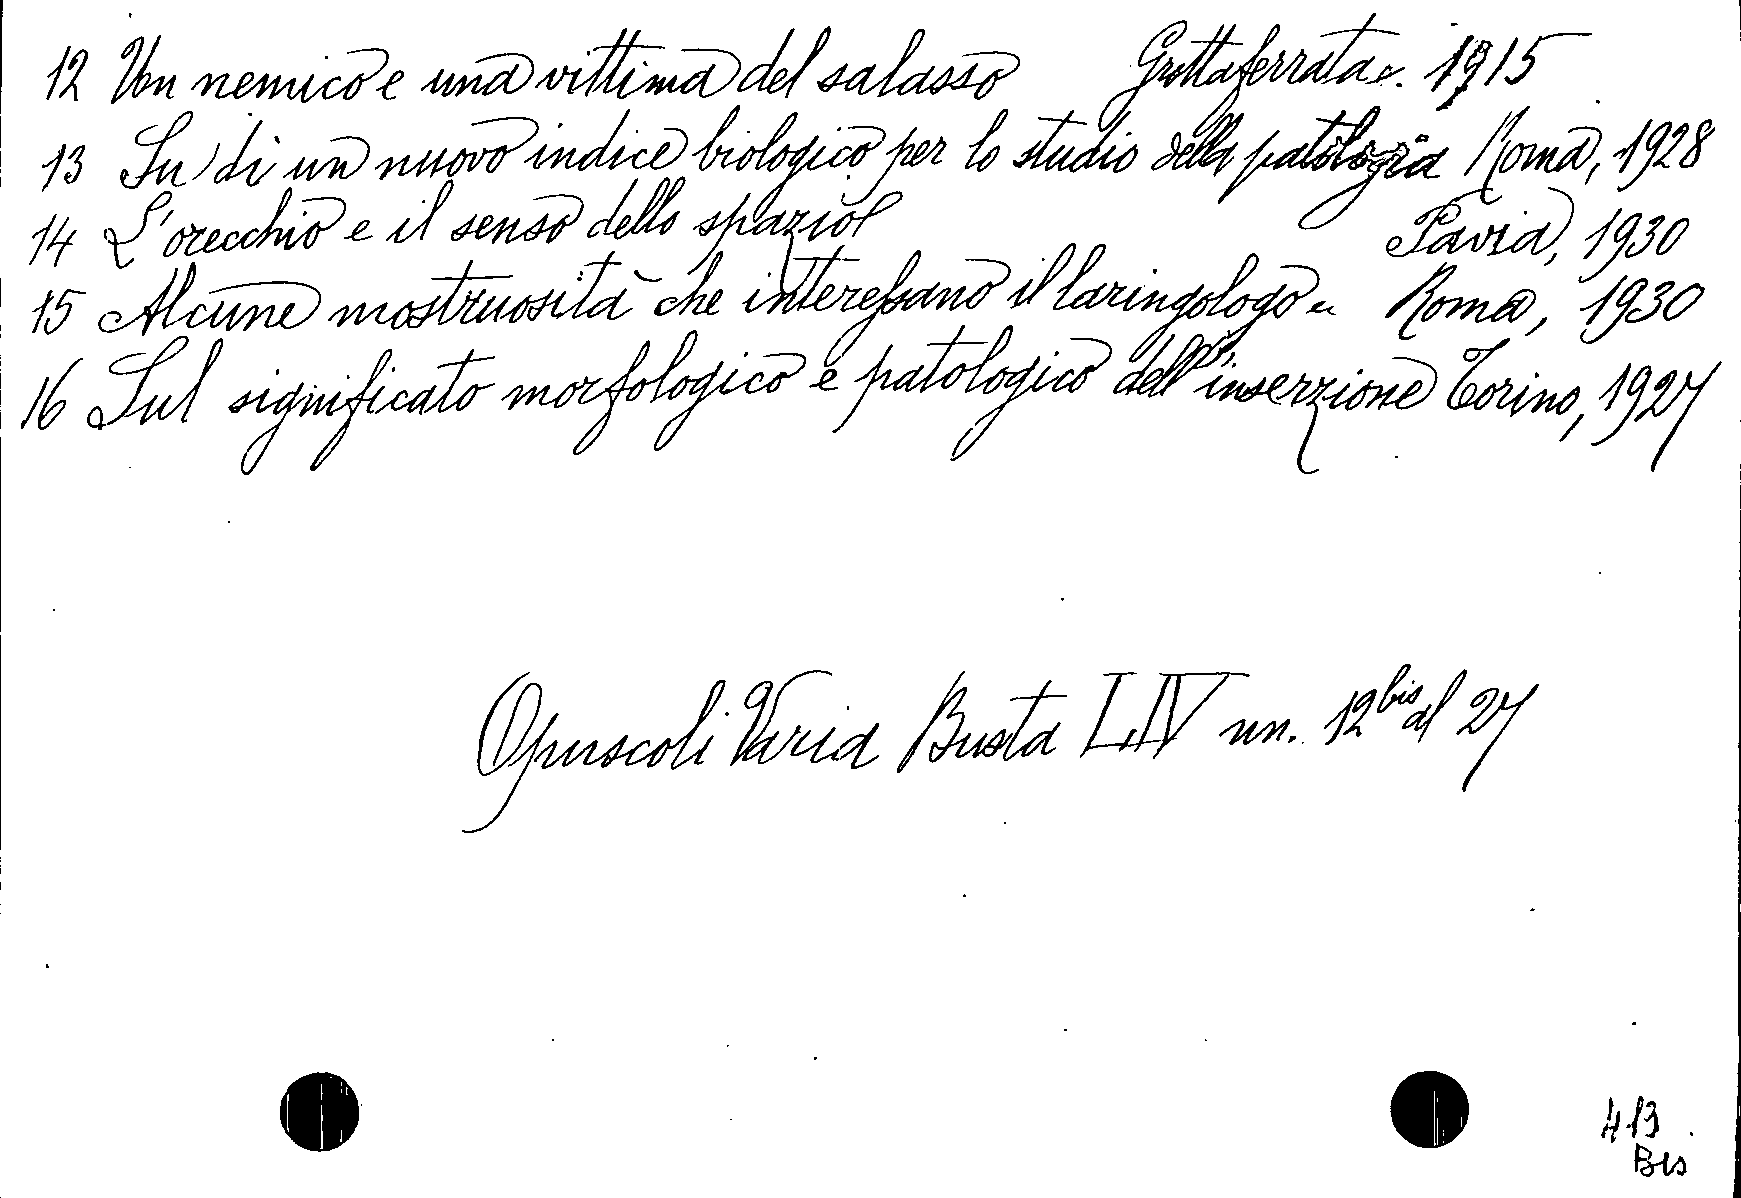 12 Un nemico e una vittima del salasso Grottaferrata. 1915
13 Su di un nuovo indice biologico per lo studio della patologia Roma, 1928
14 L'orecchio e il senso dello spazio Pavia, 1930
15 Alcune mostruosità che interessano il laringologo Roma, 1930
16 Sul significato morfologico e patologico dell'inserzione Torino, 1927
Opuscoli Varia Busta LIV nn. 12 bis al 27
413
Bis